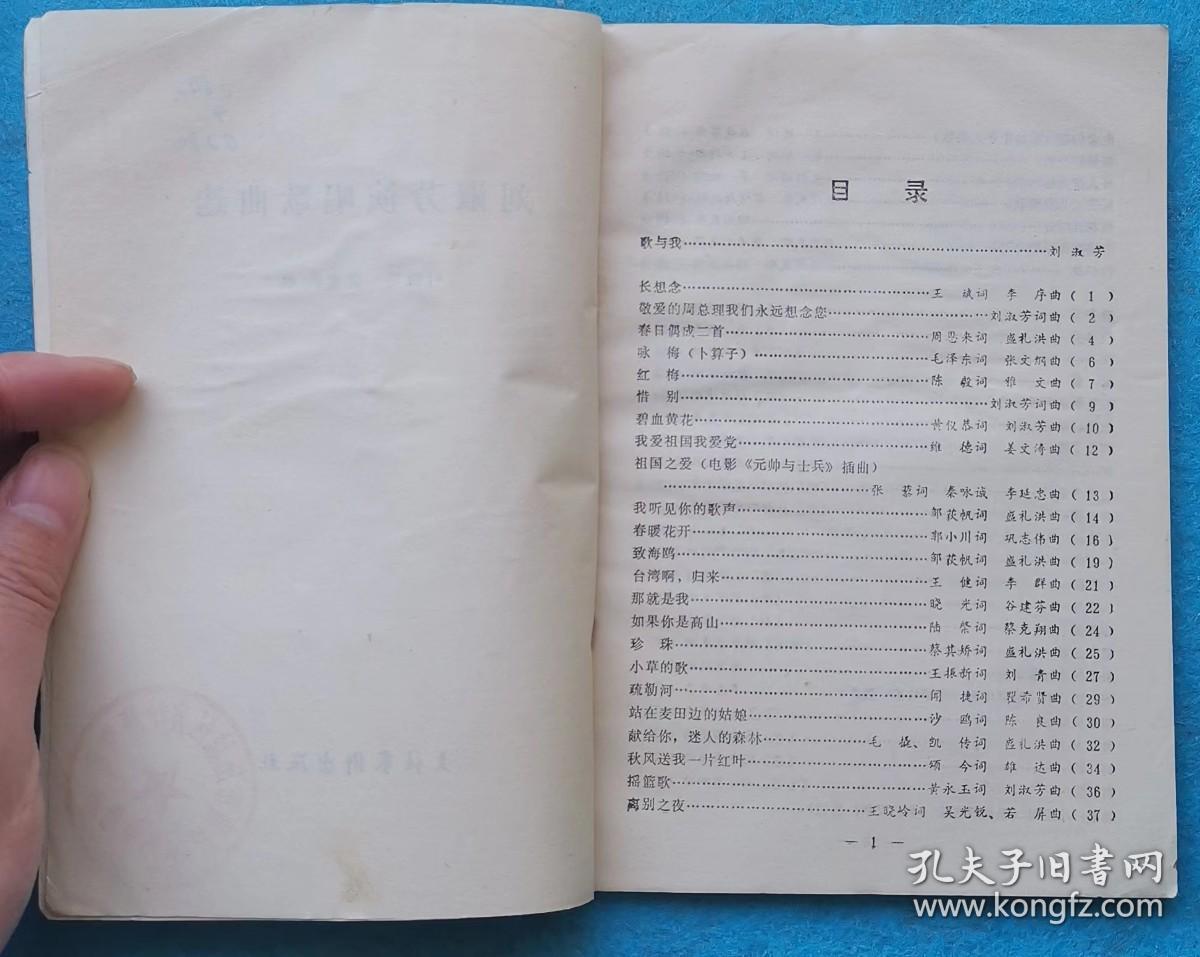 目 录
歌与我……刘淑芳
长想念……王 斌词 李 序曲（1）
敬爱的周总理我们永远想念您……刘淑芳词曲（2）
春日偶成二首……周恩来词 盛礼洪曲（4）
咏 梅（卜算子）……毛泽东词 张文炯曲（6）
红 梅……陈 毅词 雅 文曲（7）
惜 别……刘淑芳词曲（9）
碧血黄花……黄仪恭词 刘淑芳曲（10）
我爱祖国我爱党……维 德词 姜文涛曲（12）
祖国之爱（电影《元帅与士兵》插曲）
……张 藜词 秦咏诚 李延忠曲（13）
我听见你的歌声……邹荻帆词 盛礼洪曲（14）
春暖花开……郭小川词 巩志伟曲（16）
致海鸥……邹荻帆词 盛礼洪曲（19）
台湾啊，归来……王 健词 李 群曲（21）
那就是我……晓 光词 谷建芬曲（22）
如果你是高山……陆 棨词 蔡克翔曲（24）
珍 珠……蔡其矫词 盛礼洪曲（25）
小草的歌……王振新词 刘 青曲（27）
疏勒河……闻 捷词 瞿希贤曲（29）
站在麦田边的姑娘……沙 鸥词 陈 良曲（30）
献给你，迷人的森林……毛 、凯 传词 盛礼洪曲（32）
秋风送我一片红叶……颂 今词 雄 达曲（34）
摇篮歌……黄永玉词 刘淑芳曲（36）
离别之夜……王晓岭词 吴光锐、若 屏曲（37）
— 1 —
孔夫子旧书网
www.kongfz.com